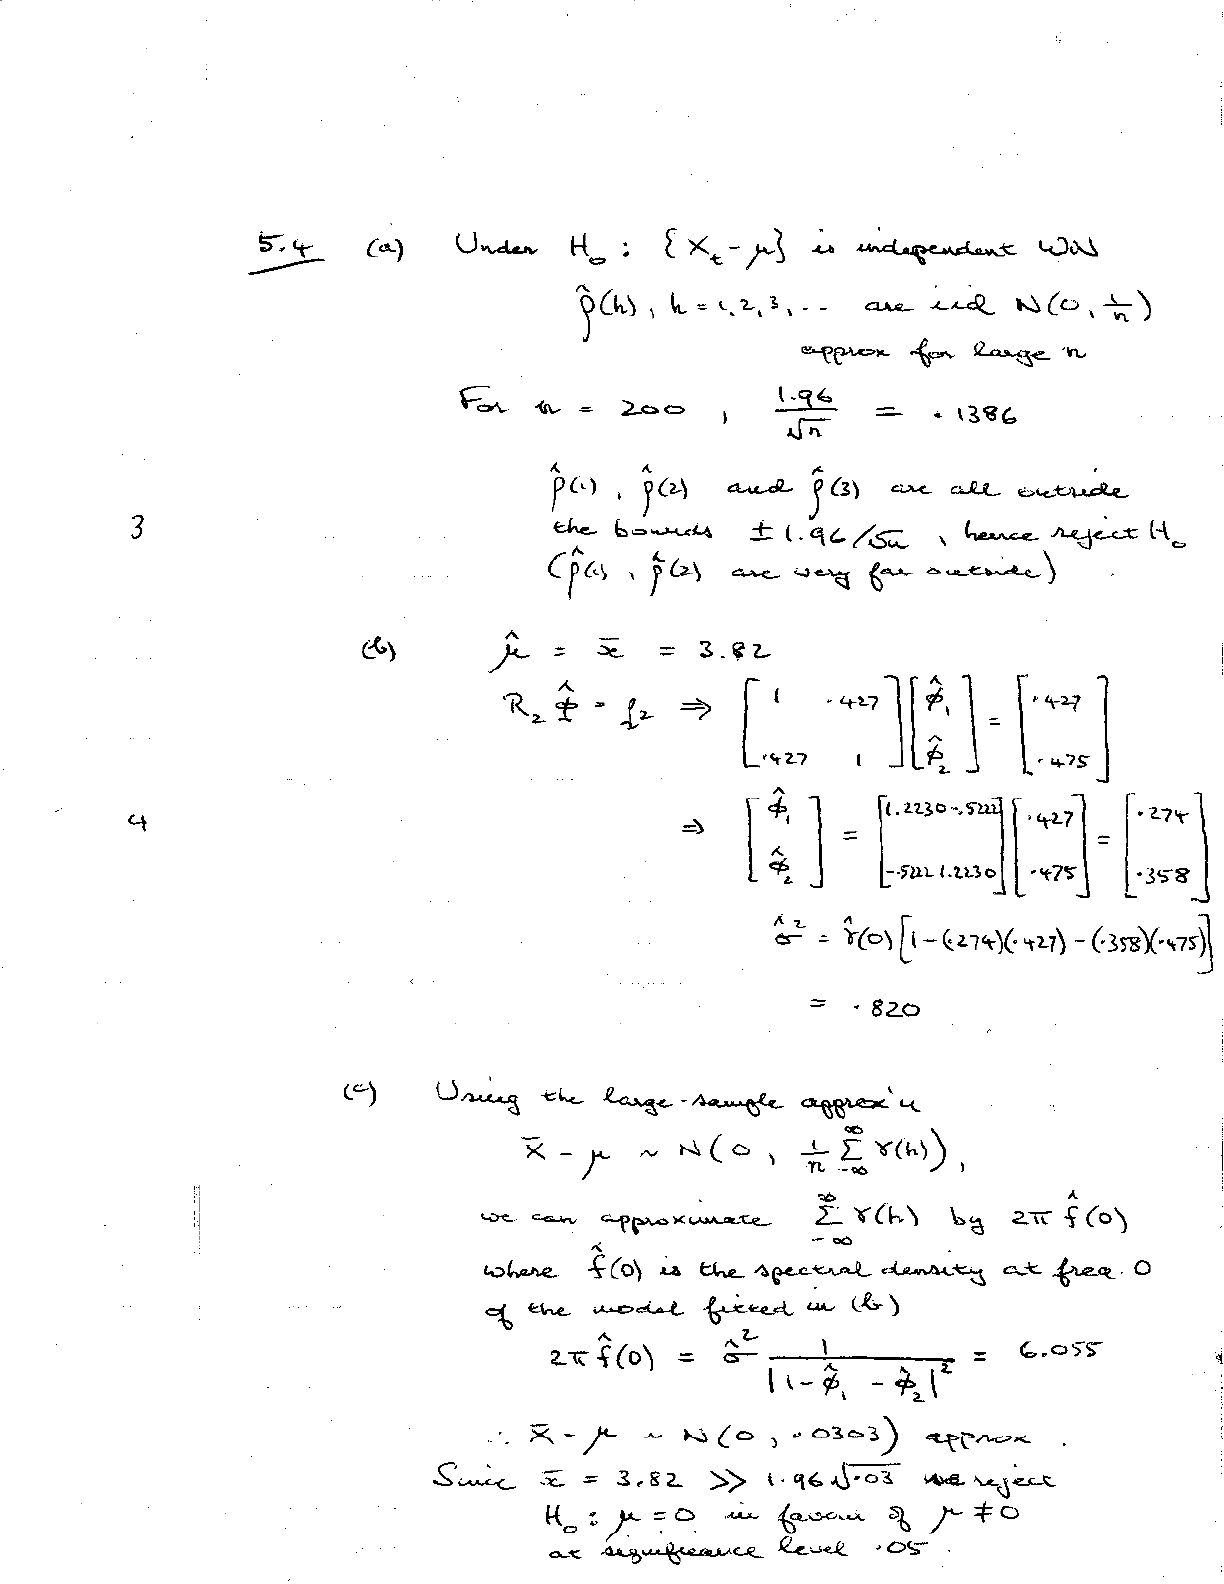 5.4 (a) Under H₀ : {Xₜ - μ} is independent WN
ρ̂(h), h = 1, 2, 3, ... are iid N(0, 1/n)
approx for large n
For n = 200 , 1.96/√n = .1386
ρ̂(1), ρ̂(2) and ρ̂(3) are all outside
3 the bounds ± 1.96/√n , hence reject H₀
(ρ̂(1), ρ̂(2) are very far outside)
(b) μ̂ = x̄ = 3.82
R₂ Φ̂ = ρ̂₂ ⇒ [1 .427; .427 1] [φ̂₁; φ̂₂] = [.427; .475]
4 ⇒ [φ̂₁; φ̂₂] = [1.2230 -.5222; -.5222 1.2230] [.427; .475] = [.274; .358]
σ̂² = γ̂(0) [1 - (.274)(.427) - (.358)(.475)]
= .820
(c) Using the large-sample approx'n
X̄ - μ ~ N(0, 1/n Σ_{-∞}^{∞} γ(h)),
we can approximate Σ_{-∞}^{∞} γ(h) by 2π f̂(0)
where f̂(0) is the spectral density at freq. 0
of the model fitted in (b)
2π f̂(0) = σ̂² 1/|1 - φ̂₁ - φ̂₂|² = 6.055
∴ X̄ - μ ~ N(0, .0303) approx.
Since x̄ = 3.82 >> 1.96 √.03 we reject
H₀ : μ = 0 in favour of μ ≠ 0
at significance level .05.